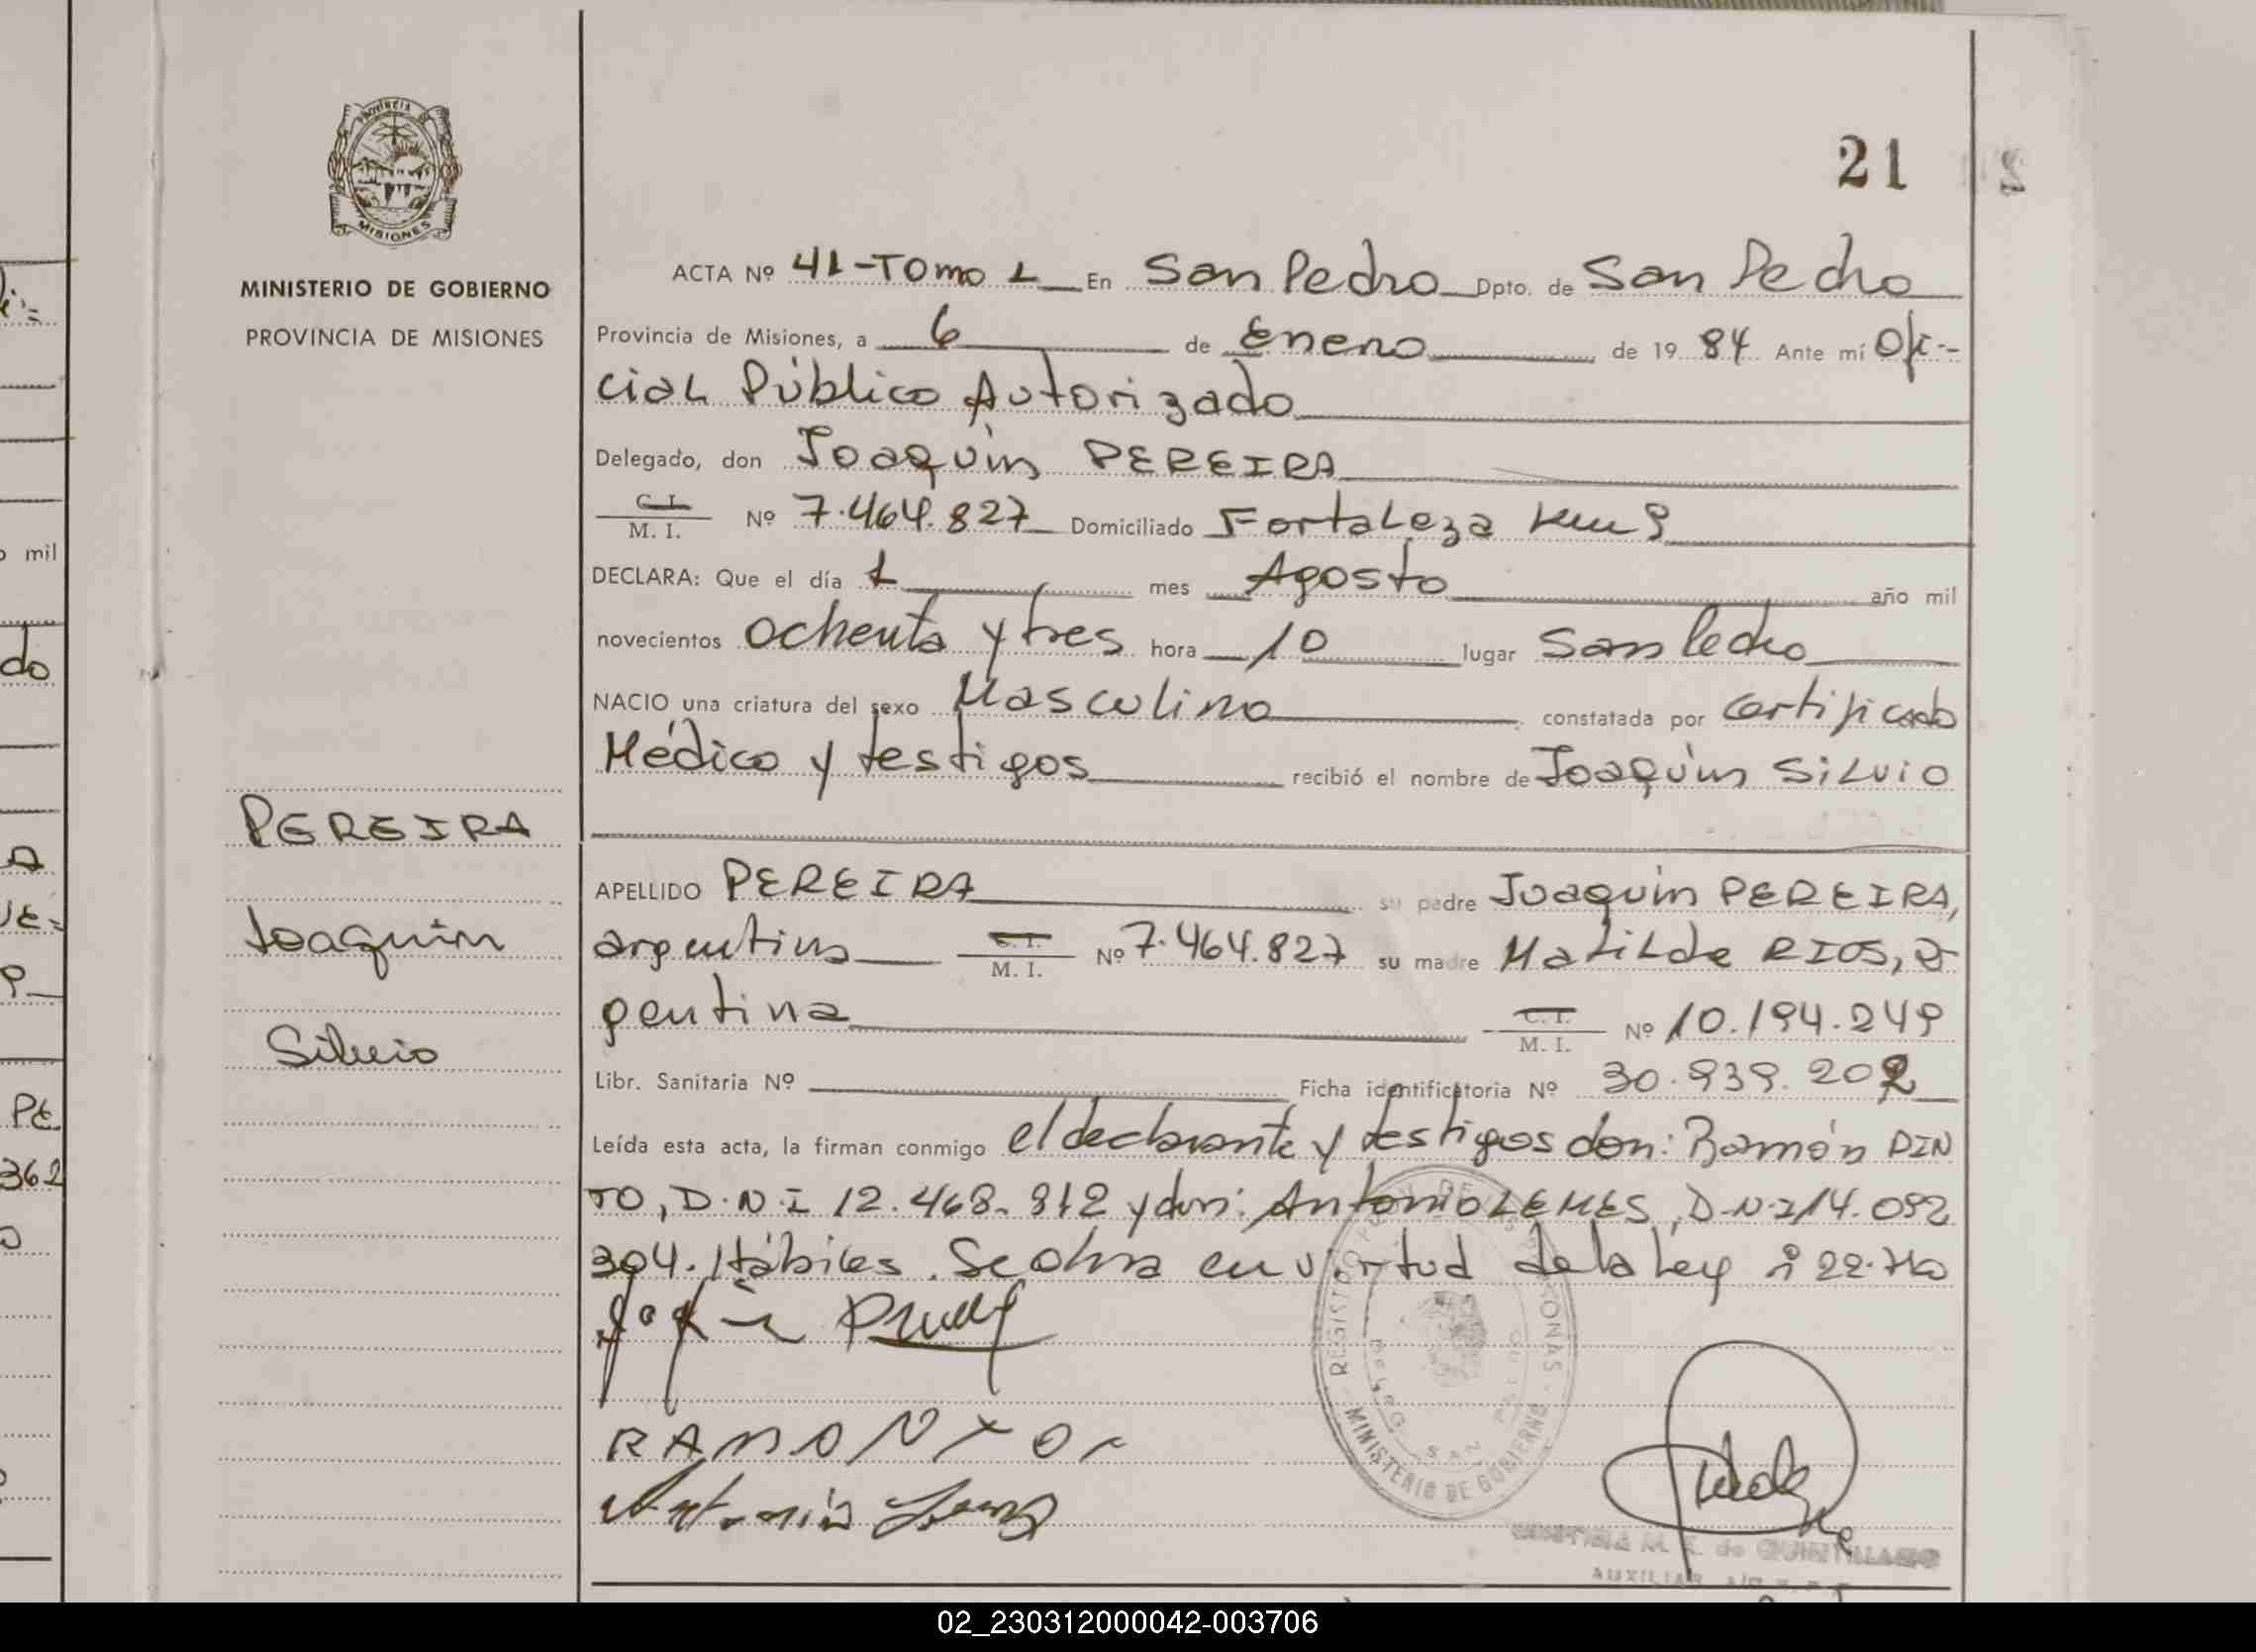 PROVINCIA DE
MISIONES
MINISTERIO DE GOBIERNO
PROVINCIA DE MISIONES
21
ACTA Nº 41-Tomo 1 En San Pedro Dpto. de San Pedro
Provincia de Misiones, a 6 de Enero de 1984 Ante mí Ofi-
cial Público Autorizado
Delegado, don Joaquín PEREIRA
C. I.
M. I. Nº 7.464.827 Domiciliado Fortaleza Km 9
DECLARA: Que el día 1 mes Agosto año mil
novecientos ochenta y tres hora 10 lugar San Pedro
NACIO una criatura del sexo Masculino constatada por certificado
Médico y testigos recibió el nombre de Joaquín Silvio
PEREIRA
Joaquín
Silvio
APELLIDO PEREIRA su padre Joaquín PEREIRA,
argentino C. I. M. I. Nº 7.464.827 su madre Matilde RIOS, ar
gentina C. I. M. I. Nº 10.194.249
Libr. Sanitaria Nº Ficha identificatoria Nº 30.939.202
Leída esta acta, la firman conmigo el declarante y testigos don: Ramón PIN
TO, D.N.I 12.468.812 y don: Antonio LEMES, D.N.I 14.092
304. Hábiles. Se obra en virtud de la Ley nº 22.
RAMON
Antonio
REGISTRO DE LAS PERSONAS
MINISTERIO DE GOBIERNO
SAN
CRISTINA M. de QUINTALANO
AUXILIAR
o mil
do
PE
362
02_230312000042-003706